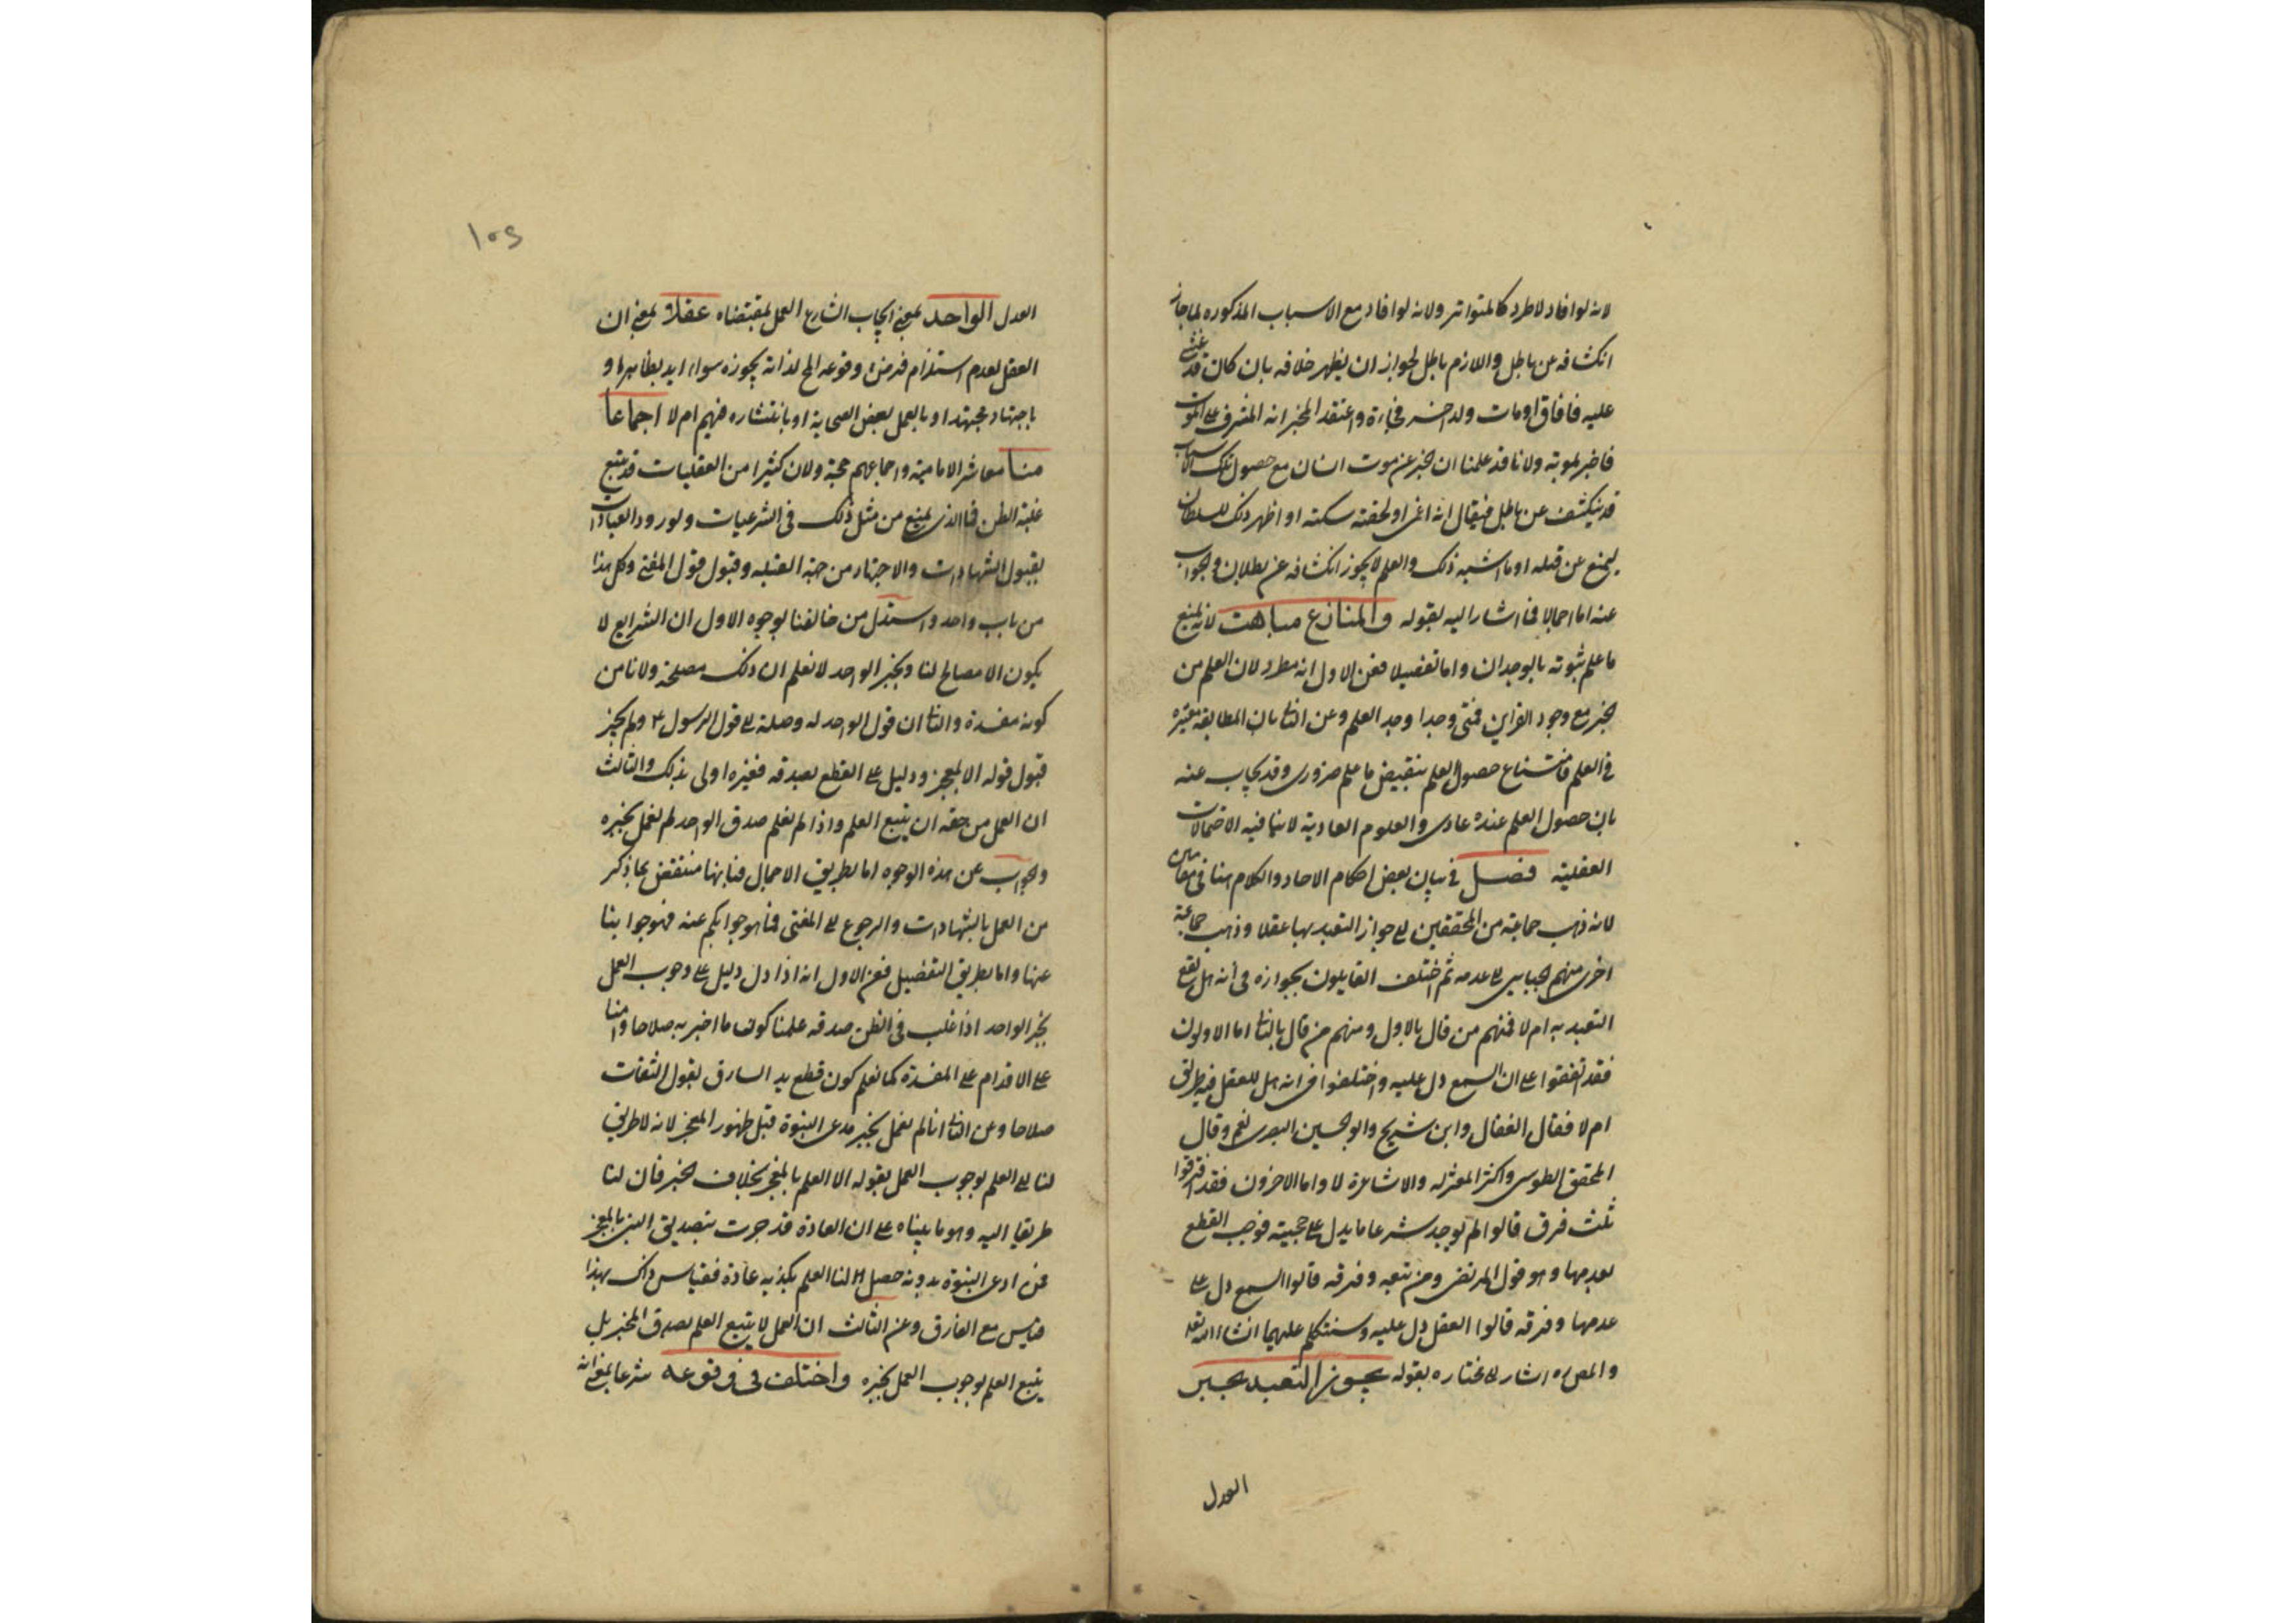 لانه لو افاد لاطرد كالمتواتر ولانه لو افاد مع الاسباب المذكوره لما جاز
انكشافه عن باطل واللازم باطل لجواز ان يظهر خلافه بان كان قد غشى
عليه فافاق او مات ولد اخر فجاءة واعتقد المخبر انه المشرف على الموت
فاخبر بموته ولانا قد علمنا ان الخبر عن موت انسان مع حصول تلك الاسباب
قد ينكشف عن باطل فيقال انه اغمى او لحقته سكته او اظهر ذلك للسلطان
ليمنع عن قتله او ما اشبه ذلك والعلم لا يجوز انكشافه عن بطلان والجواب
عنه اما اجمالا فما اشار اليه بقوله والمنازع مباهت لانه يمنع
ما علم ثبوته بالوجدان واما تفصيلا فعن الاول انه مطرد لان العلم من
الخبر مع وجود القراين فمتى وجدا وجد العلم وعن الثانى بان المطابقة معتبرة
فى العلم فامتناع حصول العلم بنقيض ما علم ضرورى وقد يجاب عنه
بان حصول العلم عنده عادى والعلوم العادية لا ينافيه الاحتمالات
العقلية فصل فى بيان بعض احكام الاحاد والكلام هنا فى مقامين
لانه ذهب جماعة من المحققين الى جواز التعبد بها عقلا وذهب جماعة
اخرى منهم الجبايى الى عدمه ثم اختلف القايلون بجوازه فى انه هل يقع
التعبد به ام لا فمنهم من قال بالاول ومنهم من قال بالثانى اما الاولون
فقد اتفقوا على ان السمع دل عليه واختلفوا فى انه هل للعقل فيه طريق
ام لا فقال القفال وابن شريح وابو الحسين البصرى نعم وقال
المحقق الطوسى واكثر المعتزله والاشاعرة لا واما الاخرون فقد افترقوا
ثلث فرق قالوا لم يوجد شرعا ما يدل على حجيته فوجب القطع
بعدمها وهو قول المرتضى ومن تبعه وفرقه قالوا السمع دل على
عدمها وفرقه قالوا العقل دل عليه وسنتكلم عليهما انشاء الله تعالى
والمص ره اشار الى مختاره بقوله يجوز التعبد بخبر
العدل
١٥٤
العدل الواحد بمعنى ايجاب الشارع العمل بمقتضاه عقلا بمعنى ان
العقل لعدم استلزام فرض وقوعه المح لذاته يجوزه سواء ايد بظاهر او
باجتهاد مجتهد او بالعمل بعض الصحابة او بانتشاره فيهم ام لا اجماعا
منا معاشر الامامية واجماعهم حجة ولان كثيرا من العقليات قد يتبع
غلبة الظن فما الذى يمنع من مثل ذلك فى الشرعيات ولورود العبادات
بقبول الشهادات والاجتهاد من جهة القبله وقبول قول المفتى وكل هذا
من باب واحد واستدل من خالفنا بوجوه الاول ان الشرايع لا
يكون الا مصالح لنا وبخبر الواحد لا نعلم ان ذلك مصلحة ولا نامن
كونه مفسدة والثانى ان قول الواحد له وصلة الى قول الرسول ع ولم يجز
قبول قوله الا بمعجز ودليل على القطع بصدقه فغيره اولى بذلك والثالث
ان العمل من حقه ان يتبع العلم واذا لم نعلم صدق الواحد لم نعمل بخبره
والجواب عن هذه الوجوه اما بطريق الاجمال فبانها منتقض بما ذكر
من العمل بالشهادات والرجوع الى المفتى فما هو جوابكم عنه فهو جوابنا
عنها واما بطريق التفصيل فعن الاول انه اذا دل دليل على وجوب العمل
بخبر الواحد اذا غلب فى الظن صدقه علمنا كون ما اخبر به صلاحا وامنا
على الاقدام على المفسدة كما نعلم كون قطع يد السارق بقول الثقات
صلاحا وعن الثانى انا لم نعمل بخبر مدعى النبوة قبل ظهور المعجز لانه لا طريق
لنا الى العلم بوجوب العمل بقوله الا العلم بالمعجز بخلاف الخبر فان لنا
طريقا اليه وهو ما بيناه على ان العادة قد جرت بتصديق النبى بالمعجز
فمن ادعى النبوة بدونه حصل لنا العلم بكذبه عادة فقياس ذاك بهذا
قياس مع الفارق وعن الثالث ان العمل لا يتبع العلم بصدق المخبر بل
يتبع العلم بوجوب العمل بخبره واختلف فى وقوعه شرعا بمعنى انه